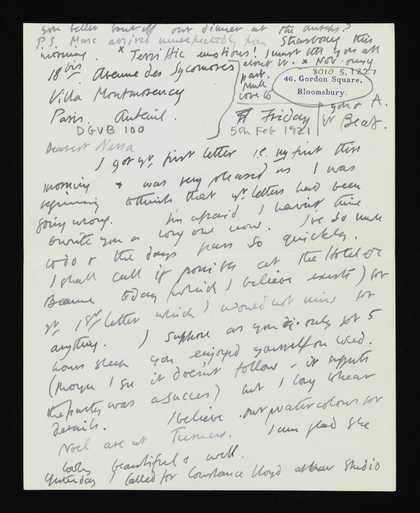 you better put off our dinner at the
P.S. Marc arrived unexpectedly from Strasbourg this
morning. * Terrific emotions! I must tell you all
about it. * NOV. only
8010.5.1221
18 bis Avenue des Sycomores
46, Gordon Square,
Bloomsbury.
Villa Montmorency
Paris. Auteuil.
Friday
DGVB 100
5th Feb 1921
Dearest Nessa
I got yr. first letter i.e. my first this
morning & was very pleased as I was
beginning to think that yr. letters had been
going wrong. I'm afraid I haven't time
to write you a long one now. I've so much
to do & the days pass so quickly.
I shall call if possible at the Hotel de
today (which I believe exists) for
yr. 1st letter which I would not miss for
anything. I suppose as you only got 5
hours sleep you enjoyed yourself on Wed.
(though I see it doesn't follow - it suggests
the party was a success) but I long to hear
details. I believe watercolours for
Noel are at Turners. I am glad she
looks beautiful & well.
Yesterday I called for Constance Lloyd at her studio